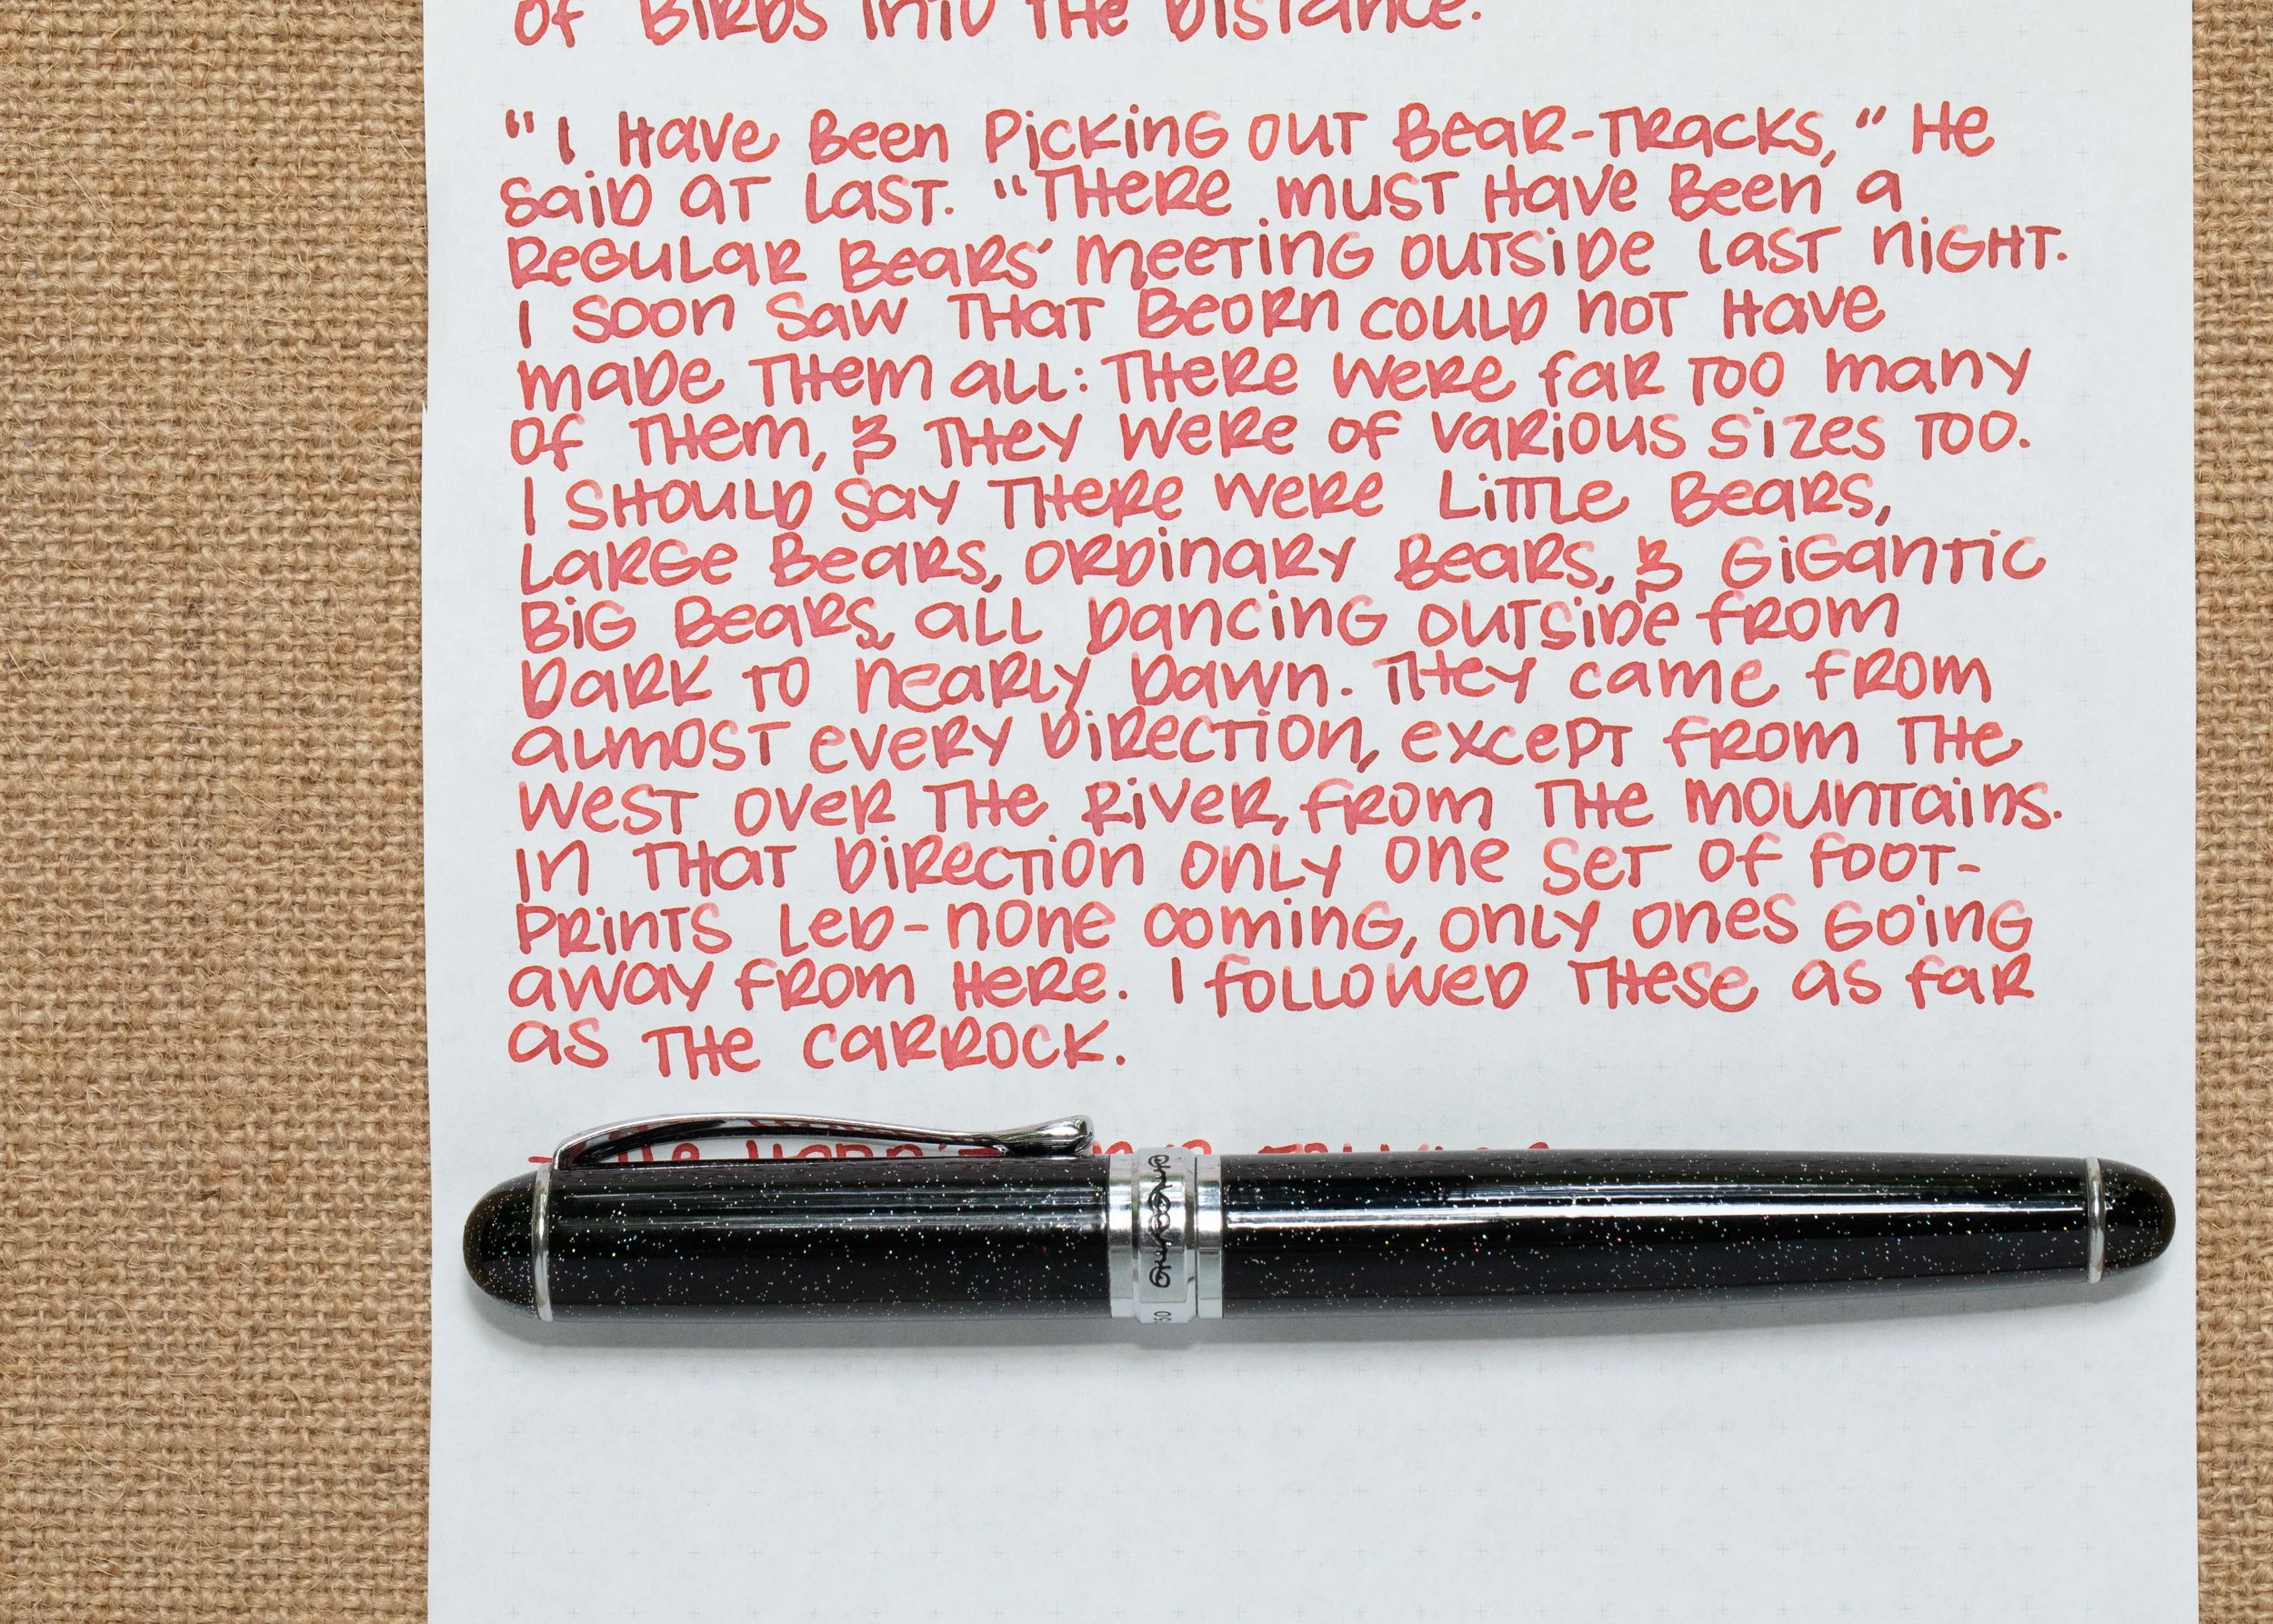 of Birds into the distance.
"I have been picking out bear-tracks," he
said at last. "There must have been a
regular bears' meeting outside last night.
I soon saw that Beorn could not have
made them all: there were far too many
of them, & they were of various sizes too.
I should say there were little bears,
large bears, ordinary bears, & gigantic
big bears, all dancing outside from
dark to nearly dawn. They came from
almost every direction, except from the
west over the river, from the mountains.
In that direction only one set of foot-
prints led - none coming, only ones going
away from here. I followed these as far
as the Carrock.